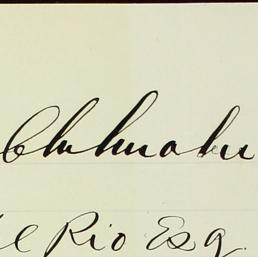 Chihuahu
el Rio Esq.